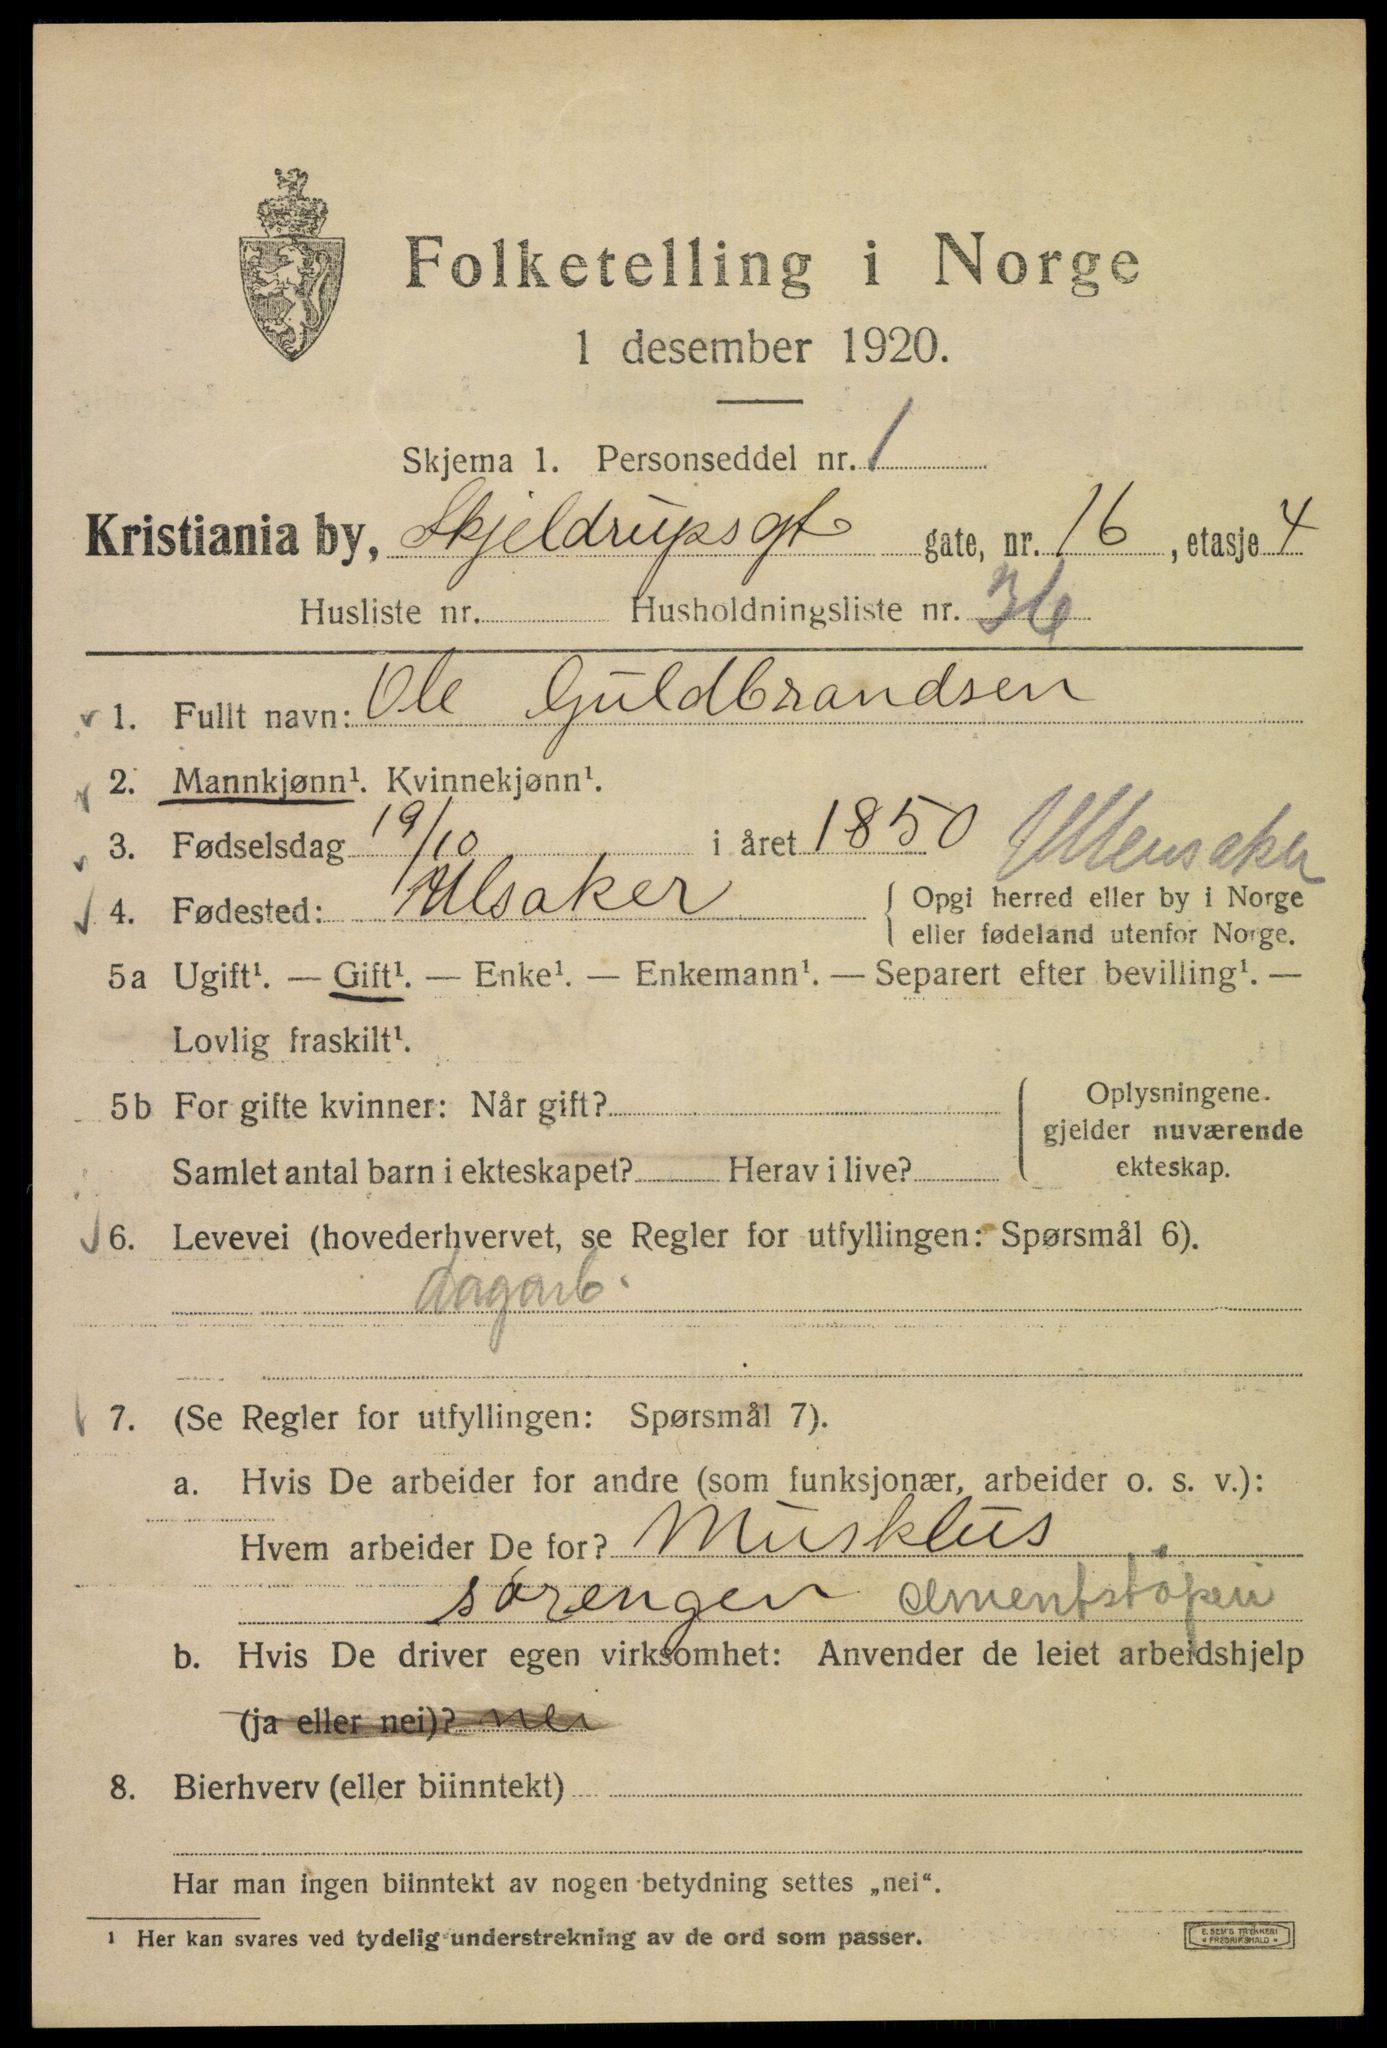 Folketelling i Norge
1 desember 1920.
Skjema 1. Personseddel nr. 1
Kristiania by, Skjeldrupsgt gate, nr. 16, etasje 4
Husliste nr. Husholdningsliste nr. 36
1. Fullt navn: Ole Guldbrandsen
2. Mannkjønn¹. Kvinnekjønn¹.
3. Fødselsdag 19/10 i året 1850 Ullensaker
4. Fødested: Ulsaker { Opgi herred eller by i Norge
eller fødeland utenfor Norge.
5a Ugift¹. — Gift¹. — Enke¹. — Enkemann¹. — Separert efter bevilling¹. —
Lovlig fraskilt¹.
5b For gifte kvinner: Når gift? { Oplysningene
gjelder nuværende
Samlet antal barn i ekteskapet? Herav i live? ekteskap.
6. Levevei (hovederhvervet, se Regler for utfyllingen: Spørsmål 6).
dagarb.
7. (Se Regler for utfyllingen: Spørsmål 7).
a. Hvis De arbeider for andre (som funksjonær, arbeider o. s. v.):
Hvem arbeider De for?
sørengen
b. Hvis De driver egen virksomhet: Anvender de leiet arbeidshjelp
(ja eller nei)? nei
8. Bierhverv (eller biinntekt)
Har man ingen biinntekt av nogen betydning settes „nei“.
¹ Her kan svares ved tydelig understrekning av de ord som passer.
E. SEM'S TRYKKERI
* FREDRIKSHALD *